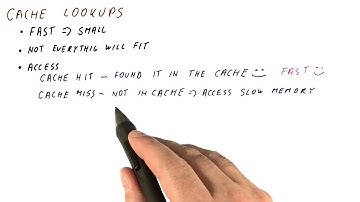 CACHE LOOKUPS
• FAST => SMALL
• NOT EVERYTHIG WILL FIT
• ACCESS
CACHE HIT - FOUND IT IN THE CACHE FAST
CACHE MISS - NOT IN CACHE => ACCESS SLOW MEMORY